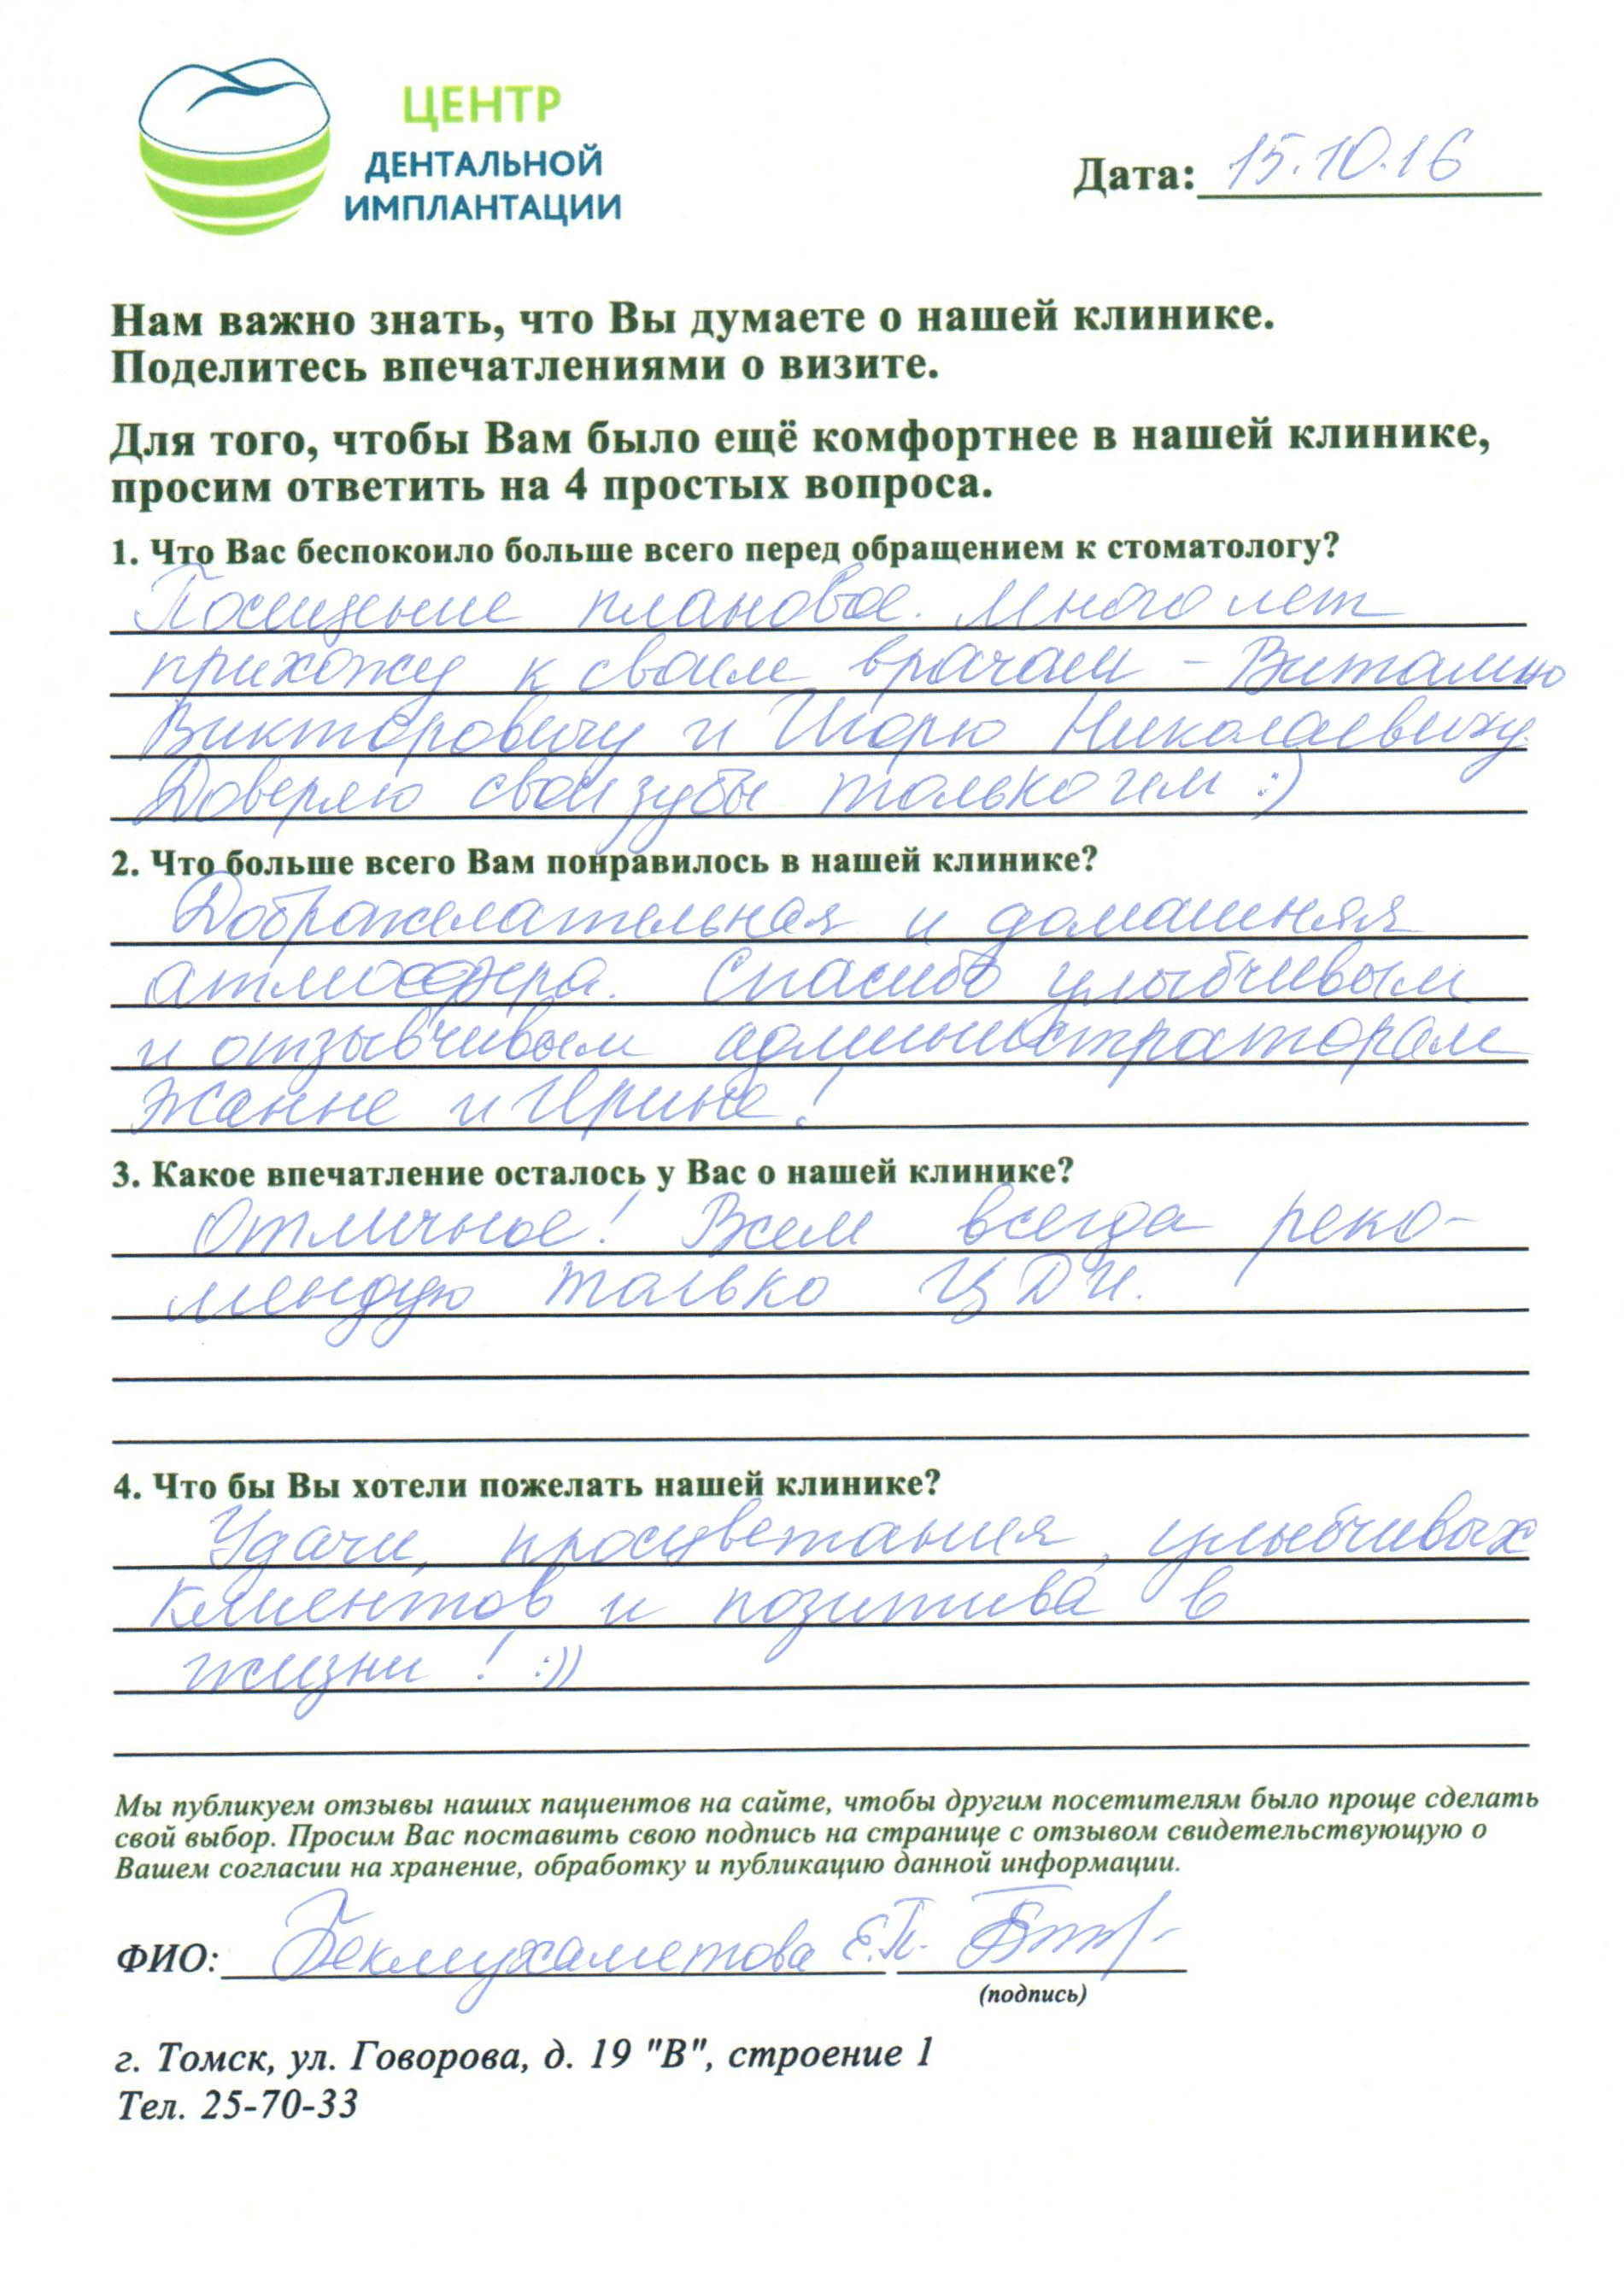 ЦЕНТР
ДЕНТАЛЬНОЙ
ИМПЛАНТАЦИИ
Дата: 15.10.16
Нам важно знать, что Вы думаете о нашей клинике.
Поделитесь впечатлениями о визите.
Для того, чтобы Вам было ещё комфортнее в нашей клинике,
просим ответить на 4 простых вопроса.
1. Что Вас беспокоило больше всего перед обращением к стоматологу?
Посещение плановое. Много лет
прихожу к своим врачам - Виталию
Викторовичу и Игорю Николаевичу.
Доверяю свои зубы только им :)
2. Что больше всего Вам понравилось в нашей клинике?
Доброжелательная и домашняя
атмосфера. Спасибо улыбчивым
и отзывчивым администраторам
Жанне и Ирине!
3. Какое впечатление осталось у Вас о нашей клинике?
Отличное! Всем всегда реко-
мендую только ЦДИ.
4. Что бы Вы хотели пожелать нашей клинике?
Удачи, процветания, улыбчивых
клиентов и позитива в
жизни! :))
Мы публикуем отзывы наших пациентов на сайте, чтобы другим посетителям было проще сделать
свой выбор. Просим Вас поставить свою подпись на странице с отзывом свидетельствующую о
Вашем согласии на хранение, обработку и публикацию данной информации.
ФИО: Бекмухаметова Е.П.
(подпись)
г. Томск, ул. Говорова, д. 19 "В", строение 1
Тел. 25-70-33